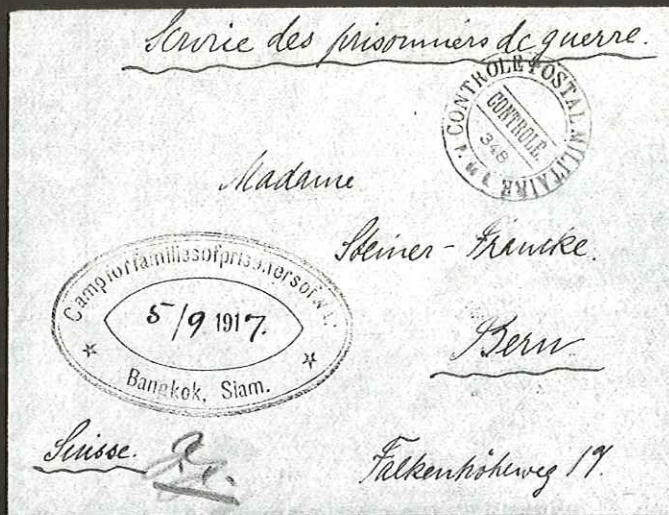 Service des prisonniers de guerre.
CONTROLE POSTAL MILITAIRE
CONTROLE.
348
Madame
Steiner-Francke.
Camp for families of prisoners of W.
5/9 1917.
Bangkok, Siam.
Bern
Suisse.
Falkenhöheweg 17